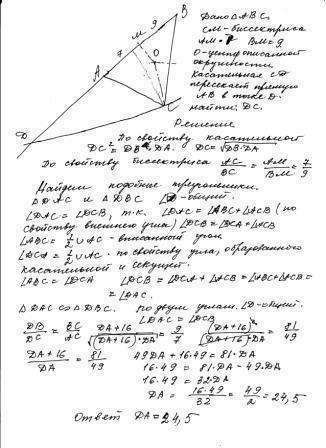 B
9
M
7
O
A
C
D
Дано ΔABC,
CM-биссектриса
AM=7 BM=9.
O-центр описанной
окружности.
Касательная CD
пересекает прямую
AB в точке D.
найти: DC.
Решение
По свойству касательной
DC² = DB·DA. DC = √DB·DA
По свойству биссектриса AC/BC = AM/BM = 7/9
Найдем подобные треугольники.
ΔDAC и ΔDBC ∠D-общий.
∠DAC = ∠DCB, т.к. ∠DAC = ∠ABC+∠ACB (по
свойству внешнего угла) ∠DCB = ∠DCA + ∠ACB
∠ABC = 1/2 ∪AC - вписанный угол
∠DCA = 1/2 ∪AC - по свойству угла, образованного
касательной и секущей.
∠ABC = ∠DCA ∠DCB = ∠DCA + ∠ACB = ∠ABC + ∠ACB =
= ∠DAC.
ΔDAC ∽ ΔDBC. по двум углам. ∠D-общий.
∠DAC = ∠DCB
DB/DC = BC/AC DA+16/√(DA+16)·DA = 9/7 (DA+16)²/(DA+16)·DA = 81/49
DA+16/DA = 81/49 49DA + 16·49 = 81·DA
16·49 = 81·DA - 49DA
16·49 = 32·DA
DA = 16·49/32 = 49/2 = 24,5
Ответ DA = 24,5